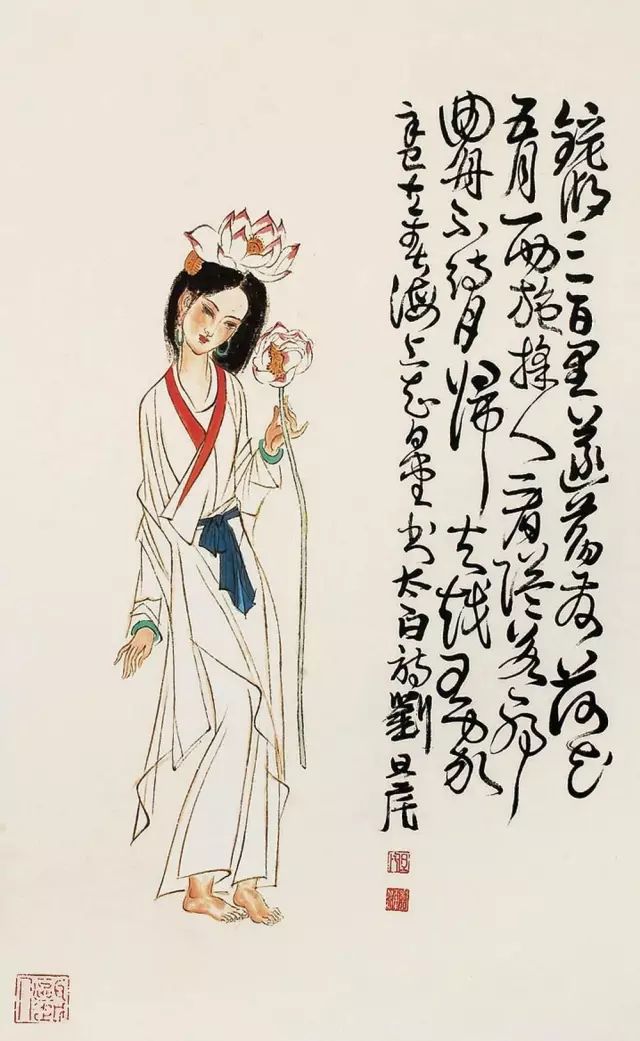 鏡湖三百里菡萏發荷花
五月西施採人看隘若耶
回舟不待月歸去越王家
辛巳 海上 書太白詩劉旦宅